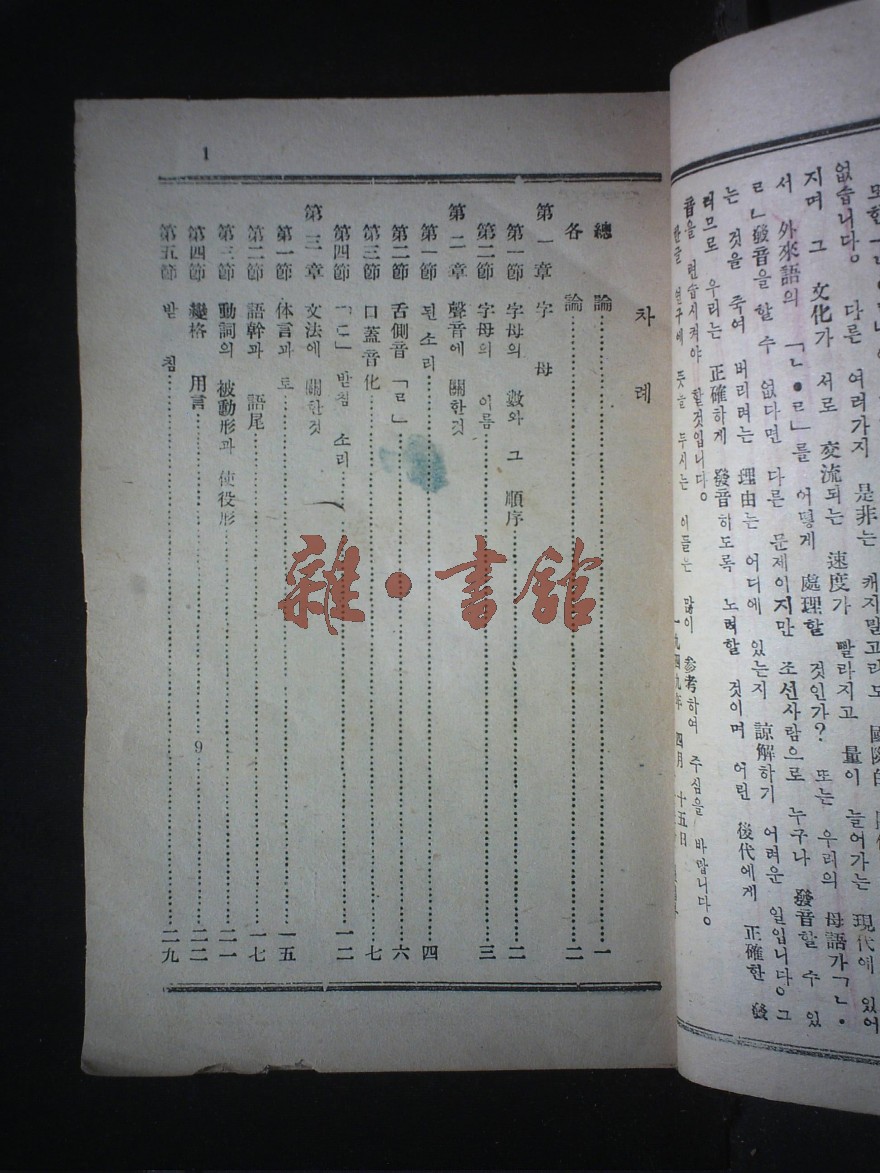 없습니다。 다른 여러가지 是非는 캐지말고라도
지며 그 文化가 서로 交流되는 速度가 빨라지고 量이 늘어가는 現代에 있어
서 外來語의 「ㄴ•ㄹ」를 어떻게 處理할 것인가? 또는 우리의 母語가ㄱㄴ•
ㄹㄴ發音을 할 수 없다면 다른 문제이지만 조선사람으로 누구나 發音할 수 있
는 것을 죽여 버리려는 理由는 어디에 있는지 諒解하기 어려운 일입니다。그
러므로 우리는 正確하게 發音하도록 노력할 것이며 어린 後代에게 正確한 發
音을 련습시켜야 할것입니다。
뜻을 두시는 이들은 많이 參考하여 주심을 바랍니다。
一九四九年 四月 十五日
1
차례
總論 一
各論 二
第一章 字母
第一節 字母의 數와 그 順序 二
第二節 字母의 이름 三
第二章 聲音에 關한것
第一節 된 소리 四
第二節 舌側音「ㄹ」 六
第三節 口蓋音化 七
第四節 「ㄷ」 받침 소리 一二
第三章 文法에 關한것
第一節 体言과 토 一五
第二節 語幹과 語尾 一七
第三節 動詞의 被動形과 使役形 二一
第四節 變格 用言 二二
第五節 받침 二九
9
雜•書館